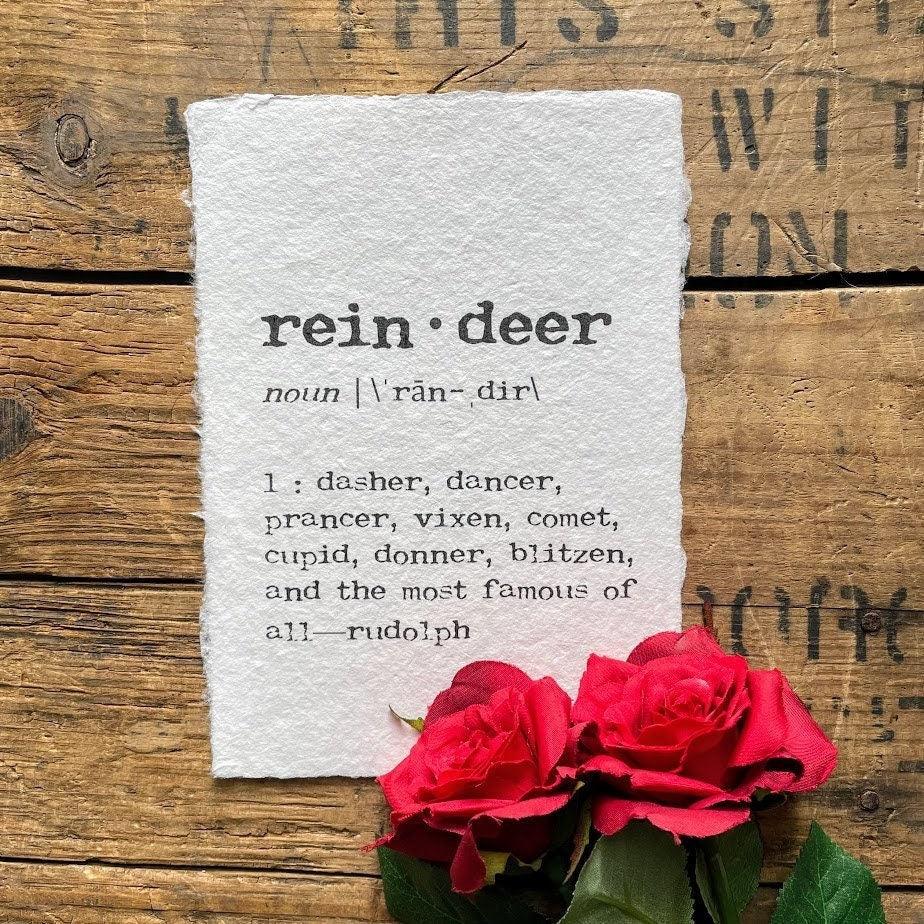 THIS
WIT
rein·deer
noun |\ˈrān-ˌdir\
1 : dasher, dancer,
prancer, vixen, comet,
cupid, donner, blitzen,
and the most famous of
all—rudolph